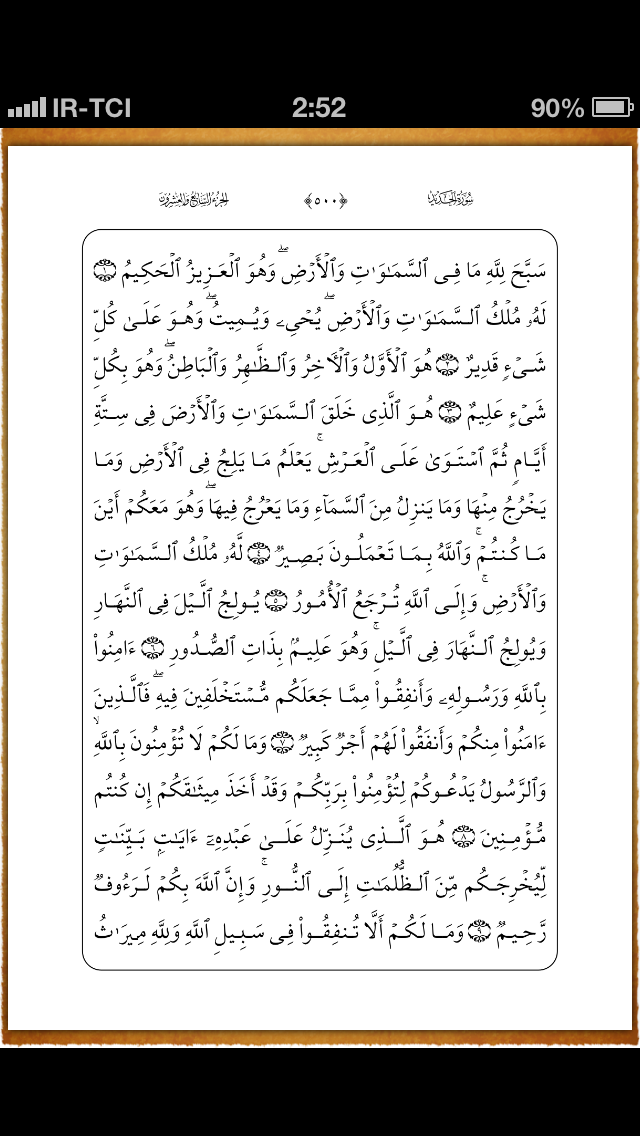 IR-TCI 2:52 90%
سُورَةُ الحَدِيدِ ﴿٥٠٠﴾ الجُزءُ السَّابِعُ وَالعِشرُونَ
سَبَّحَ لِلَّهِ مَا فِى ٱلسَّمَـٰوَٰتِ وَٱلْأَرْضِ ۖ وَهُوَ ٱلْعَزِيزُ ٱلْحَكِيمُ ١
لَهُۥ مُلْكُ ٱلسَّمَـٰوَٰتِ وَٱلْأَرْضِ ۖ يُحْىِۦ وَيُمِيتُ ۖ وَهُوَ عَلَىٰ كُلِّ
شَىْءٍ قَدِيرٌ ٢ هُوَ ٱلْأَوَّلُ وَٱلْـَٔاخِرُ وَٱلظَّـٰهِرُ وَٱلْبَاطِنُ ۖ وَهُوَ بِكُلِّ
شَىْءٍ عَلِيمٌ ٣ هُوَ ٱلَّذِى خَلَقَ ٱلسَّمَـٰوَٰتِ وَٱلْأَرْضَ فِى سِتَّةِ
أَيَّامٍ ثُمَّ ٱسْتَوَىٰ عَلَى ٱلْعَرْشِ ۚ يَعْلَمُ مَا يَلِجُ فِى ٱلْأَرْضِ وَمَا
يَخْرُجُ مِنْهَا وَمَا يَنزِلُ مِنَ ٱلسَّمَآءِ وَمَا يَعْرُجُ فِيهَا ۖ وَهُوَ مَعَكُمْ أَيْنَ
مَا كُنتُمْ ۚ وَٱللَّهُ بِمَا تَعْمَلُونَ بَصِيرٌ ٤ لَّهُۥ مُلْكُ ٱلسَّمَـٰوَٰتِ
وَٱلْأَرْضِ ۚ وَإِلَى ٱللَّهِ تُرْجَعُ ٱلْأُمُورُ ٥ يُولِجُ ٱلَّيْلَ فِى ٱلنَّهَارِ
وَيُولِجُ ٱلنَّهَارَ فِى ٱلَّيْلِ ۚ وَهُوَ عَلِيمٌۢ بِذَاتِ ٱلصُّدُورِ ٦ ءَامِنُوا۟
بِٱللَّهِ وَرَسُولِهِۦ وَأَنفِقُوا۟ مِمَّا جَعَلَكُم مُّسْتَخْلَفِينَ فِيهِ ۖ فَٱلَّذِينَ
ءَامَنُوا۟ مِنكُمْ وَأَنفَقُوا۟ لَهُمْ أَجْرٌ كَبِيرٌ ٧ وَمَا لَكُمْ لَا تُؤْمِنُونَ بِٱللَّهِ ۙ
وَٱلرَّسُولُ يَدْعُوكُمْ لِتُؤْمِنُوا۟ بِرَبِّكُمْ وَقَدْ أَخَذَ مِيثَـٰقَكُمْ إِن كُنتُم
مُّؤْمِنِينَ ٨ هُوَ ٱلَّذِى يُنَزِّلُ عَلَىٰ عَبْدِهِۦٓ ءَايَـٰتٍۭ بَيِّنَـٰتٍ
لِّيُخْرِجَكُم مِّنَ ٱلظُّلُمَـٰتِ إِلَى ٱلنُّورِ ۚ وَإِنَّ ٱللَّهَ بِكُمْ لَرَءُوفٌ
رَّحِيمٌ ٩ وَمَا لَكُمْ أَلَّا تُنفِقُوا۟ فِى سَبِيلِ ٱللَّهِ وَلِلَّهِ مِيرَٰثُ